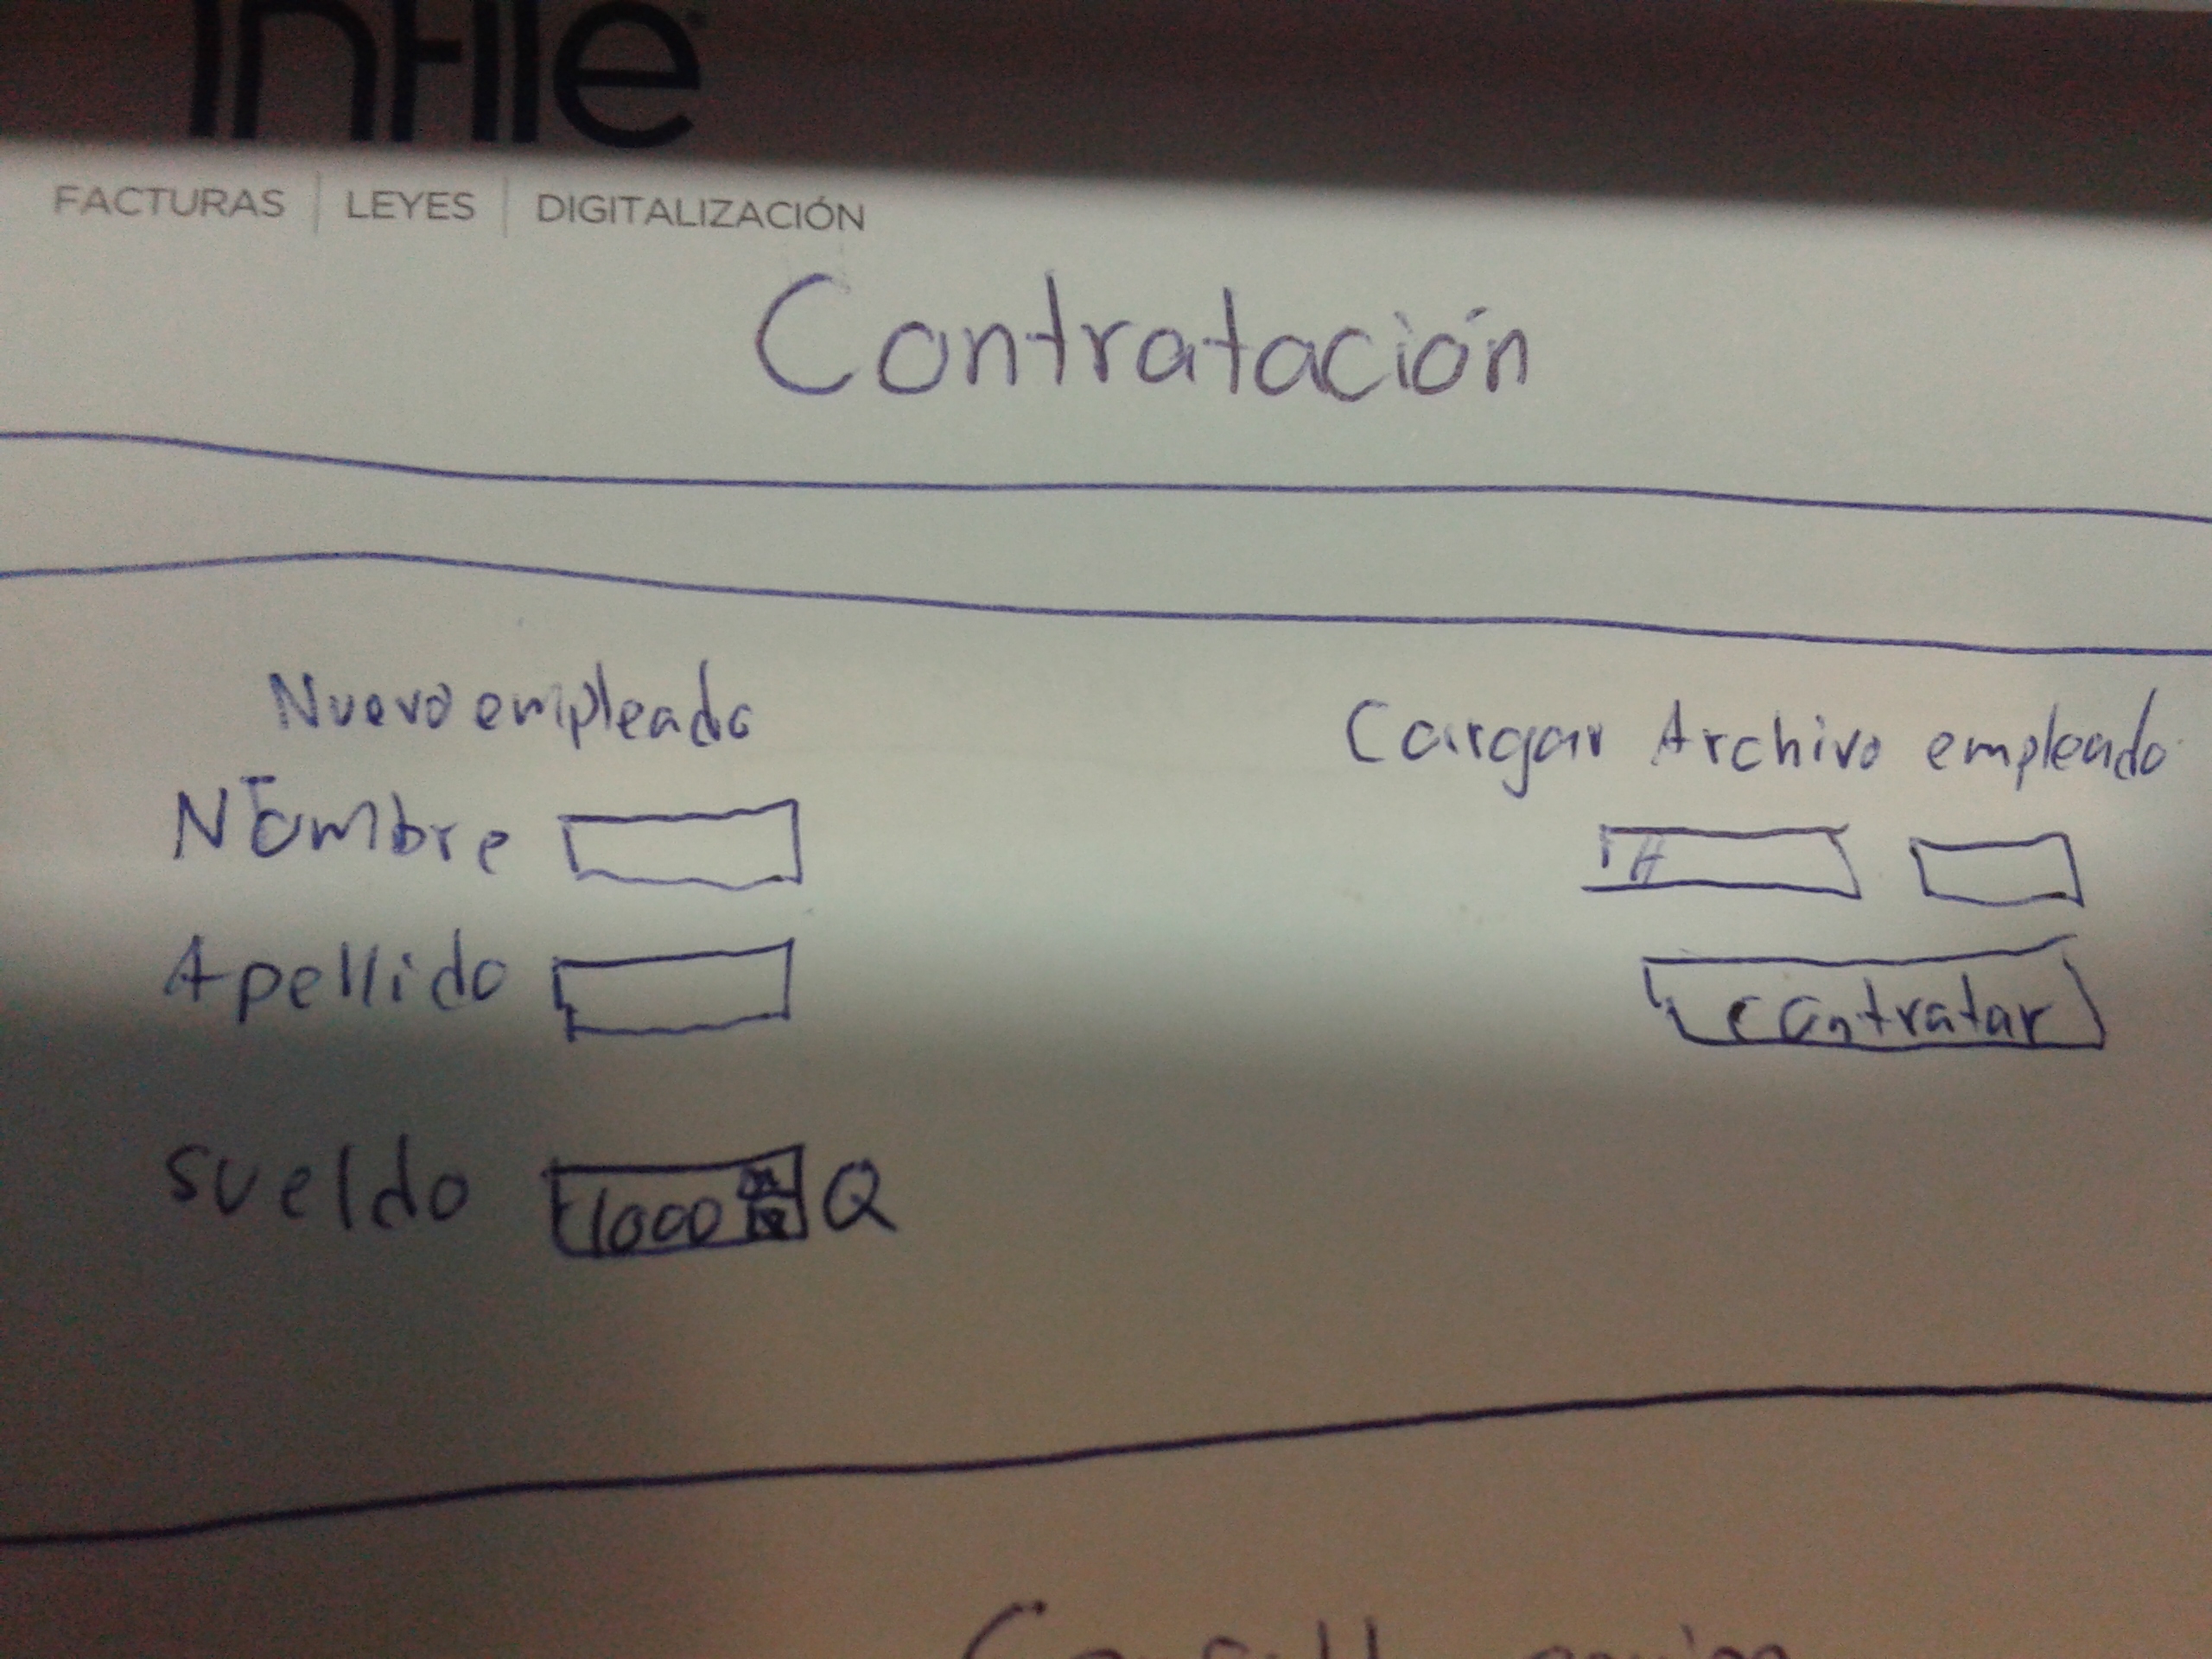 infile
FACTURAS | LEYES | DIGITALIZACIÓN
Contratación
Nuevo empleado
Nombre
Apellido
sueldo 1000 Q
Cargar Archivo empleado
contratar